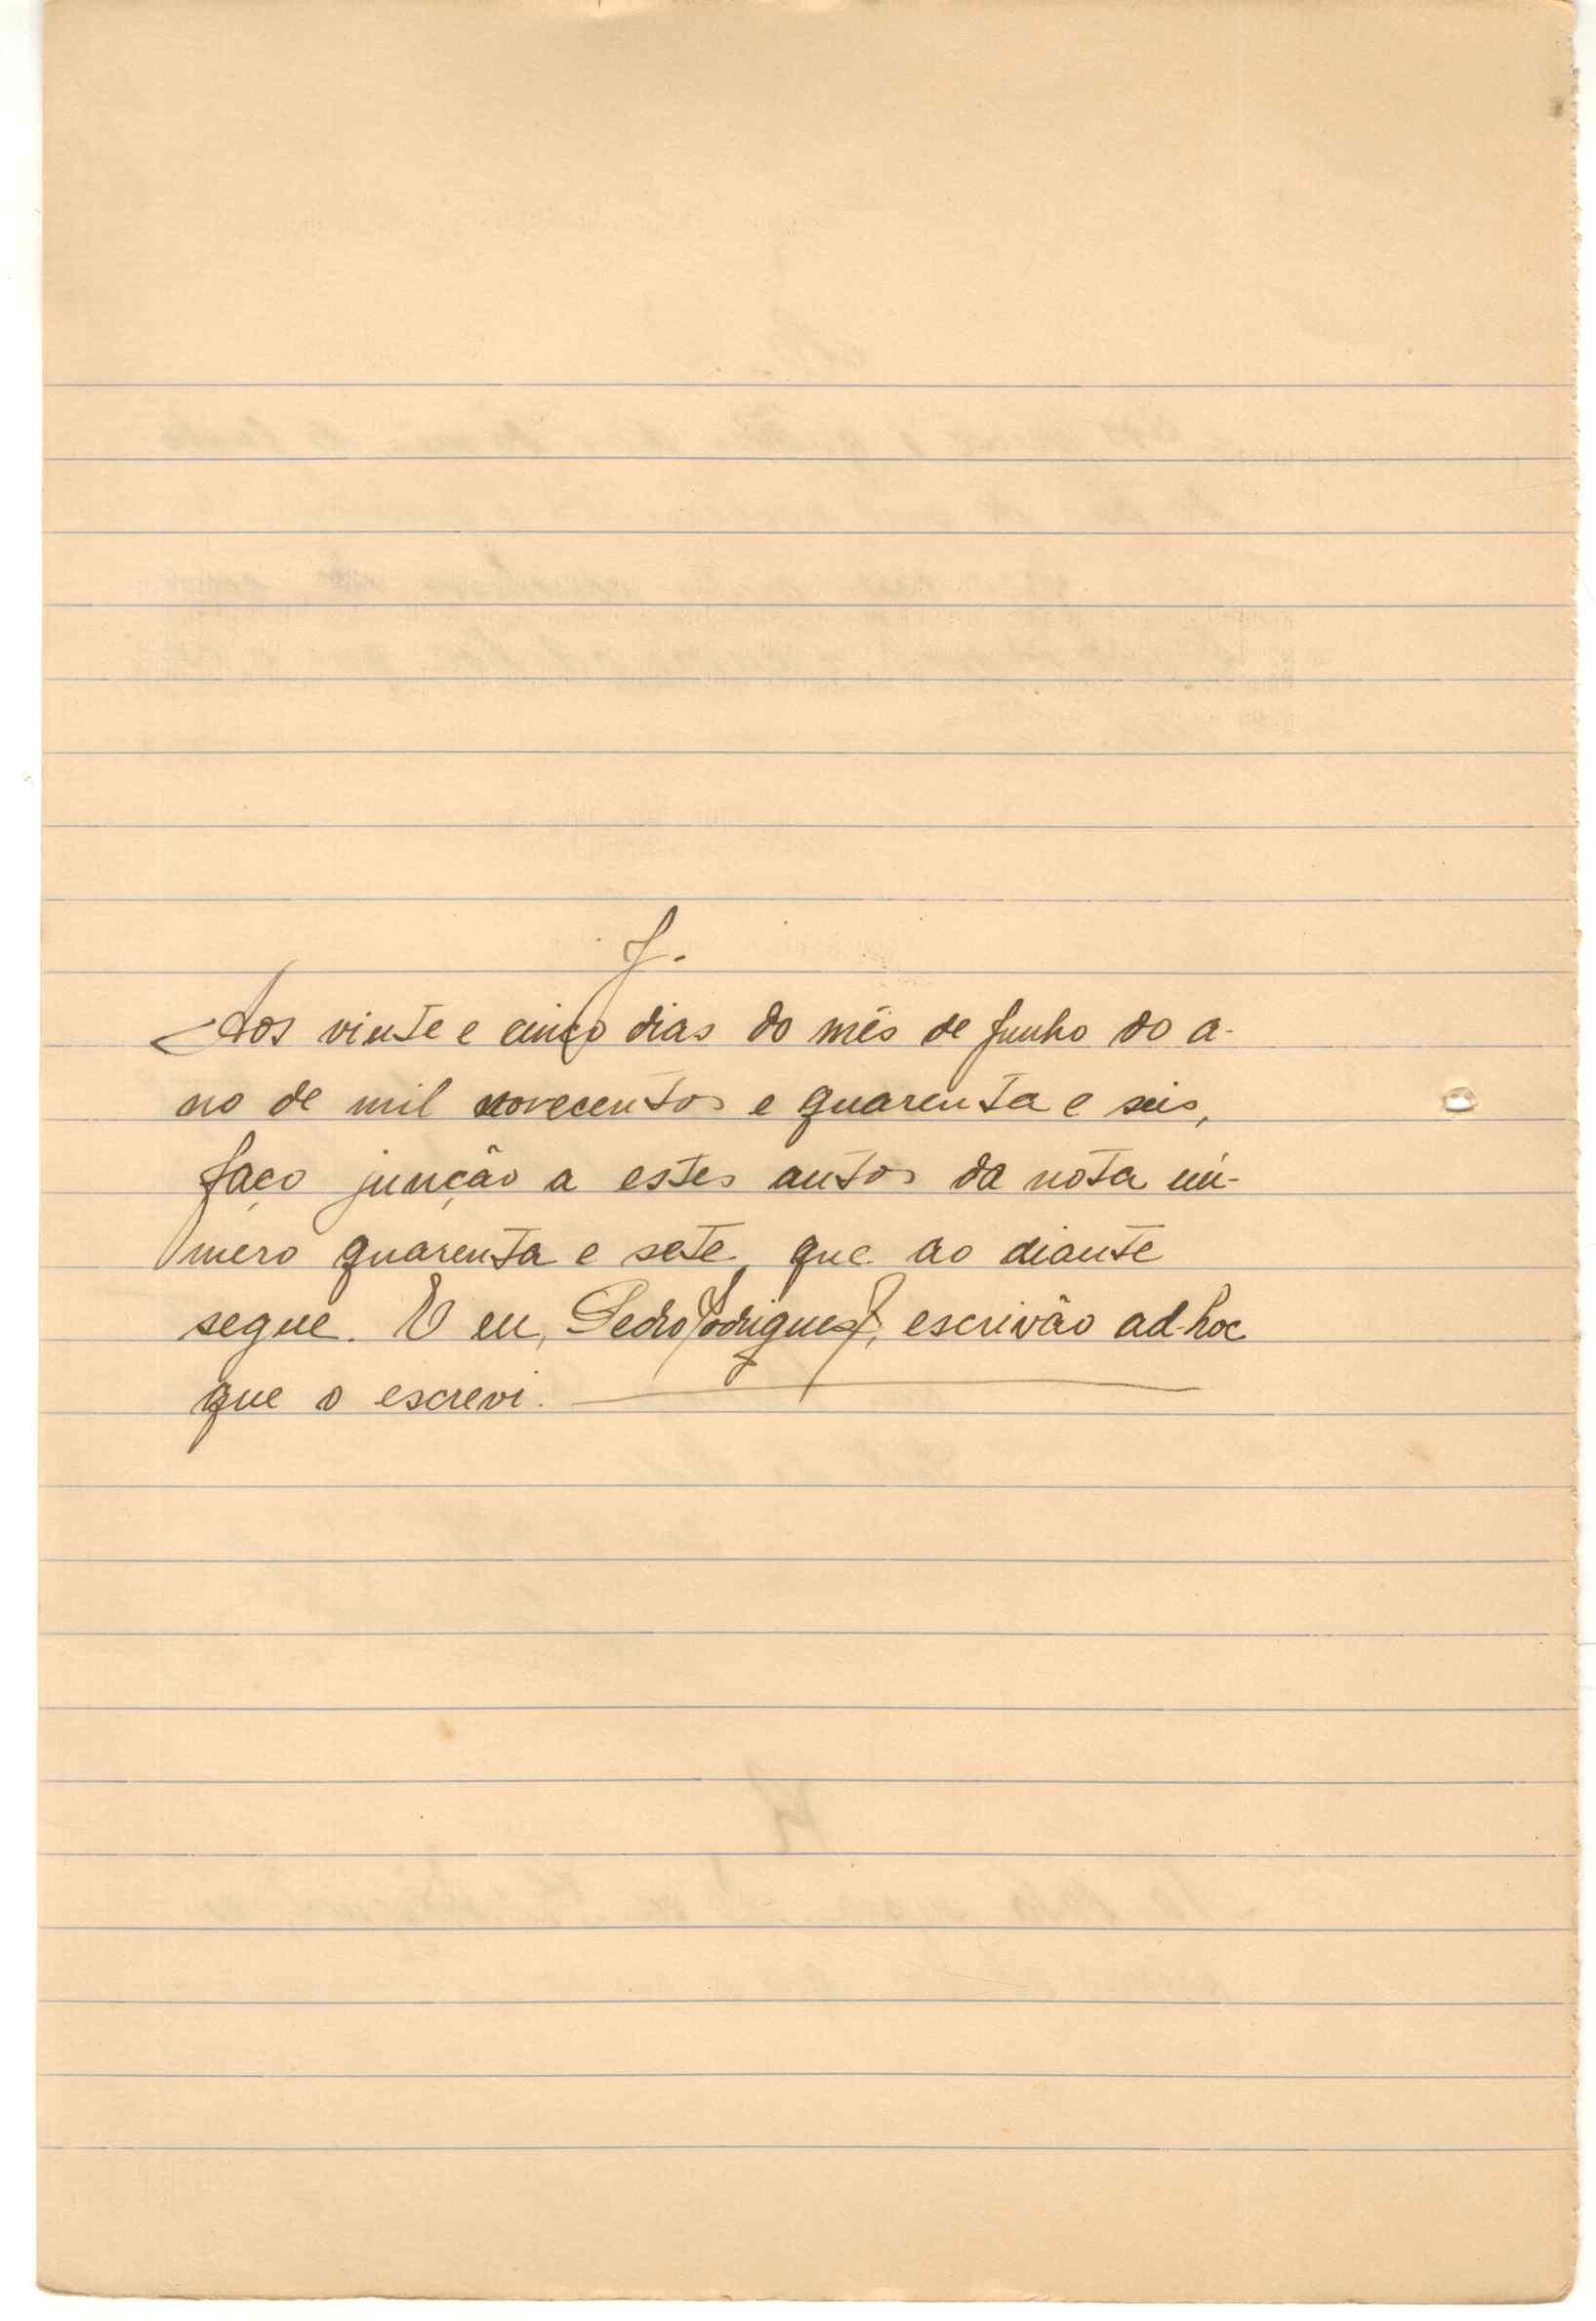 J.
Aos vinte e cinco dias do mês de Junho do a-
no de mil novecentos e quarenta e seis,
faço junção a estes autos da nota nú-
mero quarenta e sete, que ao diante
segue. E eu, Pedro Rodrigues, escrivão ad-hoc
que o escrevi.